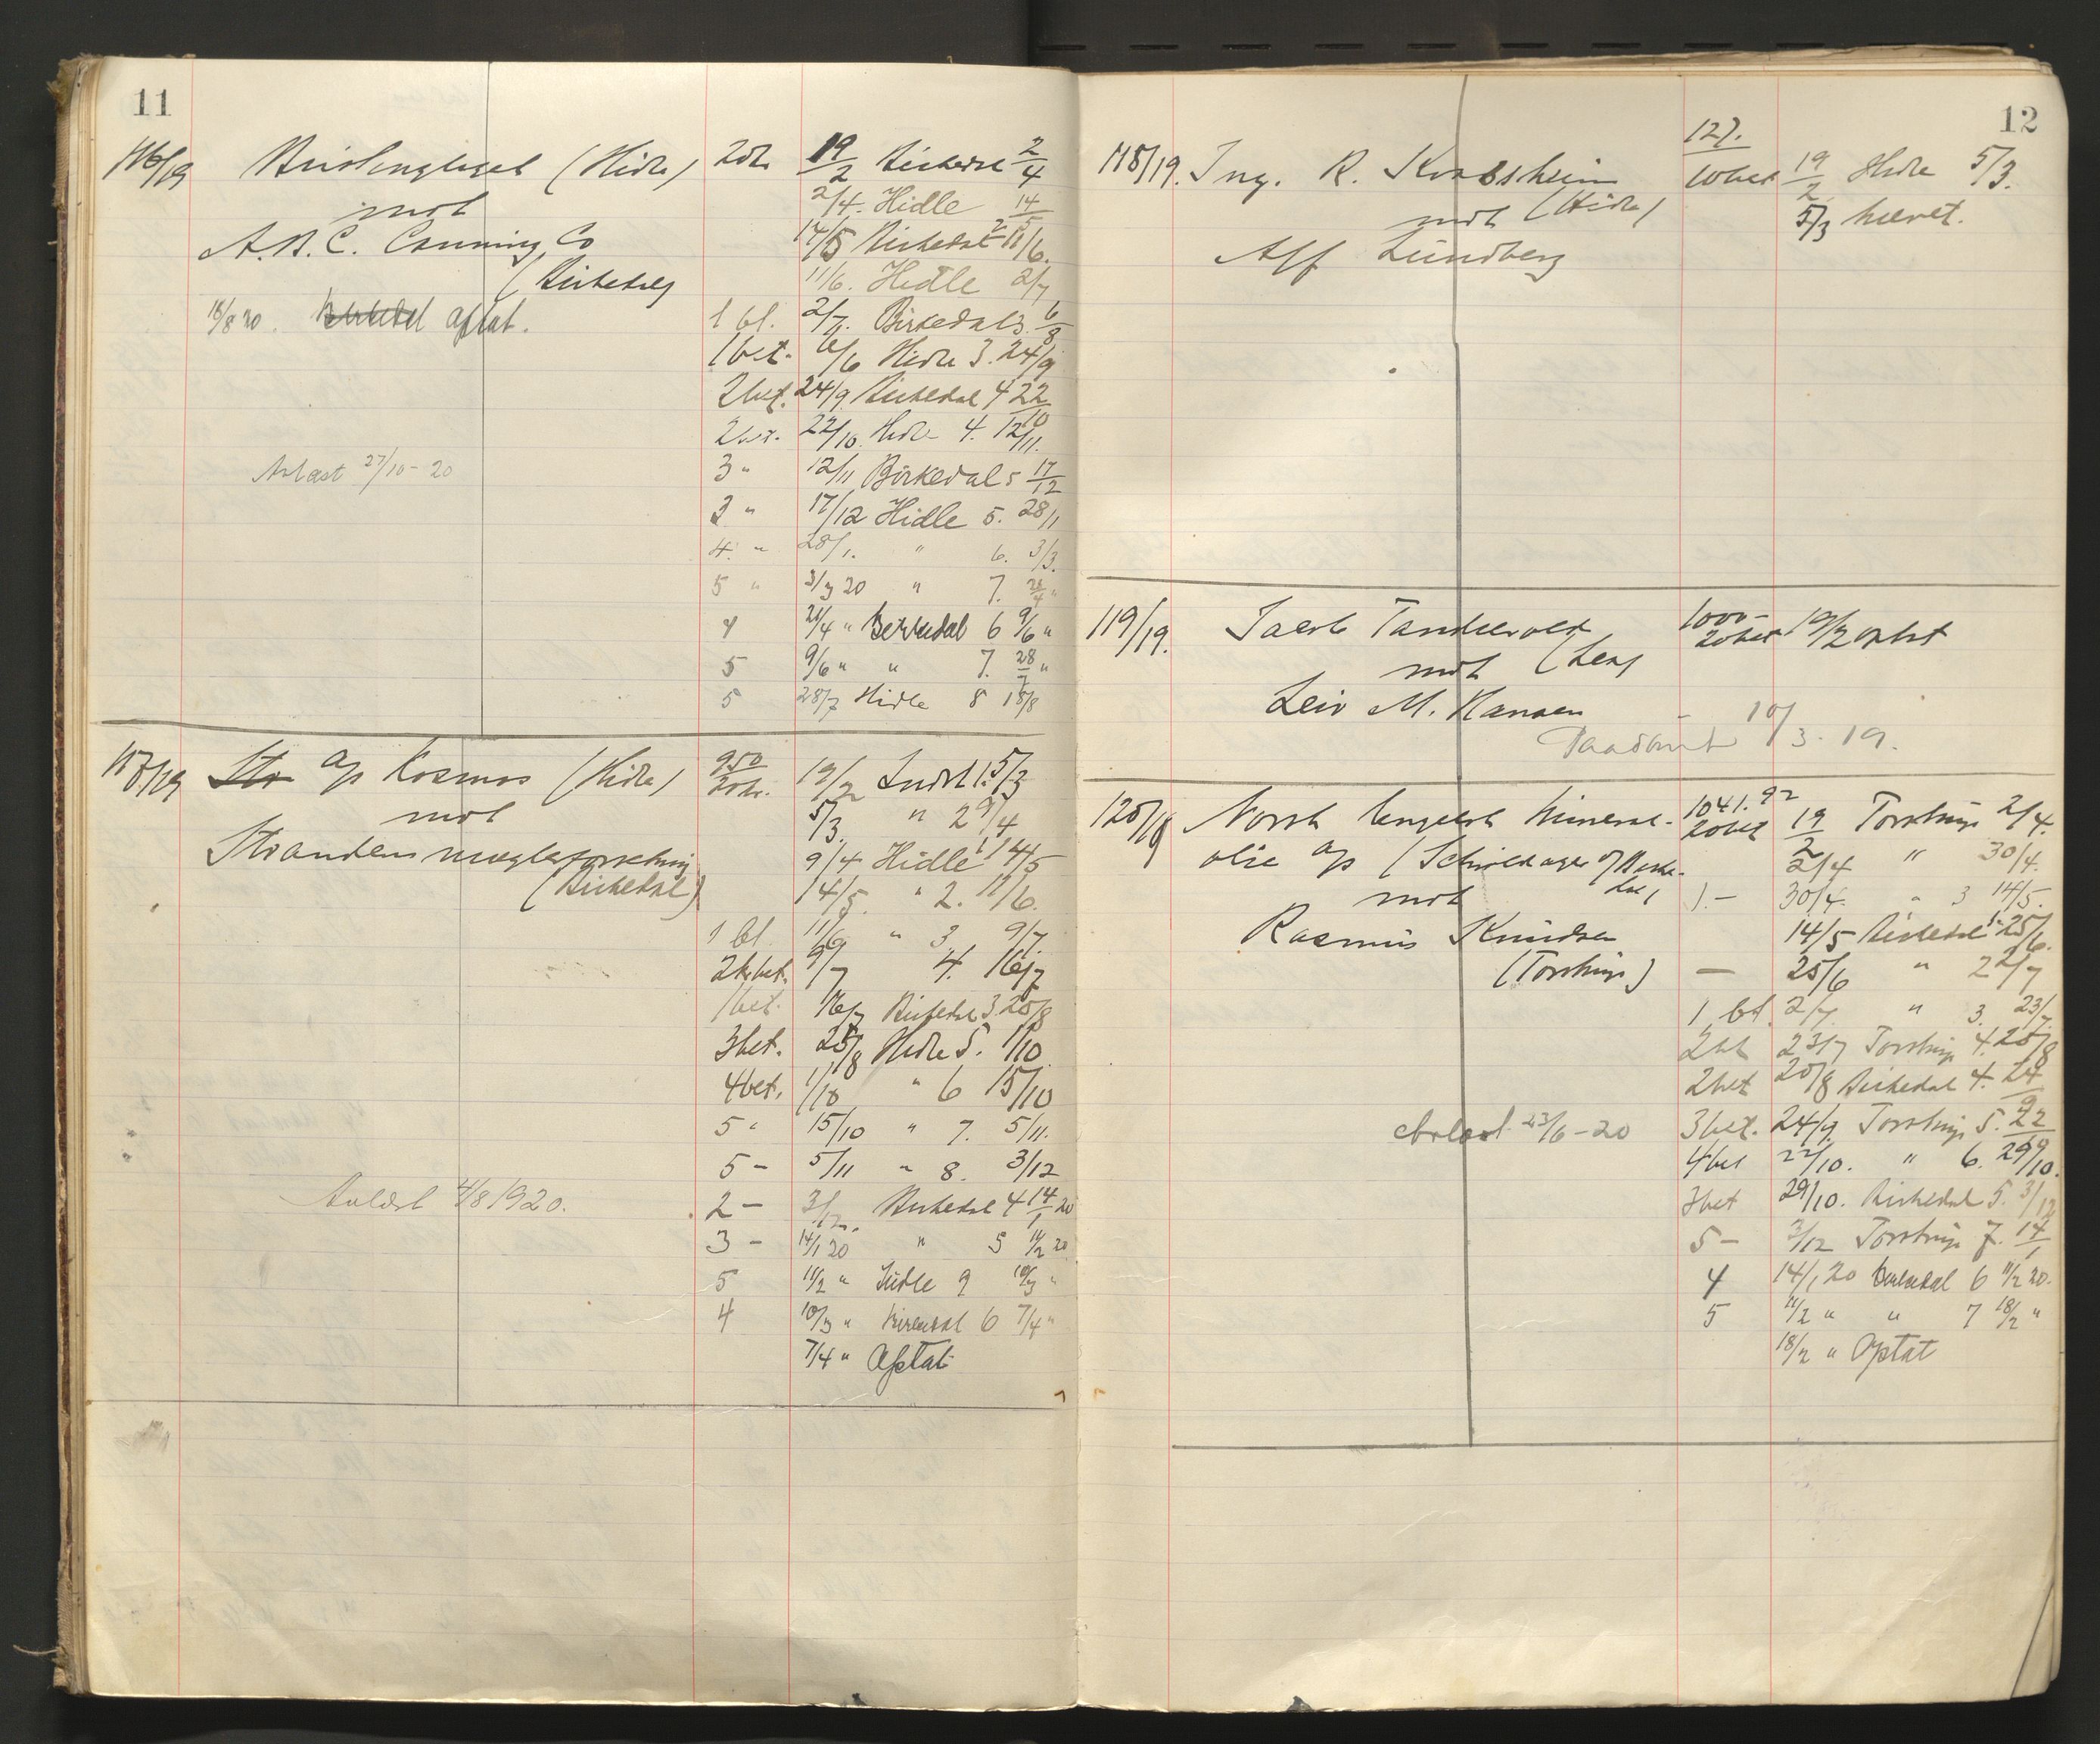 11
116/19 (Hidle) 2 bet. 19/2 Birkedal 2/4
mot 2/4. Hidle 14/5
A.B.C. Canning Co 14/5 Birkedal 2 11/6.
(Birkedal) 11/6. Hidle 2/7
18/8 20. Birkedal optat. 1 bl. 2/7. Birkedal 3. 6/8
1 bet. 6/8 Hidle 3. 24/9
2 bet. 24/9 Birkedal 4 22/10
2 bet. 22/10 Hidle 4. 12/11.
Avlæst 27/10-20 3 " 12/11 Birkedal 5 17/12
3 " 17/12 Hidle 5. 28/1
4. " 28/1. " 6. 3/3.
5 " 3/3 20 " 7. 21/4 "
4 21/4 " Birkedal 6 9/6 "
5 9/6 " " 7. 28/7 "
5 28/7 Hidle 8 18/8
117/19 A/S Kosmos (Hidle) 950 19/2 1. 5/3
mot 5/3. " 2 9/4
Strandens mæglerforretning 9/4 Hidle 1 14/5
(Birkedal) 14/5. " 2. 11/6.
1 bl. 11/6 " 3. 9/7.
2 bet. 9/7 4. 16/7
1 bet. 16/7 Birkedal 3. 20/8
3 bet. 20/8 Hidle 5. 1/10
4 bet. 1/10 " 6 15/10
5 " 15/10 " 7. 5/11.
5 - 5/11 " 8. 3/12
Avlæst 4/8 1920. 2 - 3/12. Birkedal 4 14/1 20
3 - 14/1 20 " 5 11/2 20
5 11/2 " Hidle 9 10/3 "
4 10/3 " Birkedal 6 7/4 "
7/4 " Optat
12
127.
118/19. Ing. R. Kvassheim 10 bet 19/2 Hidle 5/3.
mot (Hidle) 5/3 hævet.
Alf Lundberg
119/19. Jacob Tandrevold 1000- 2 bet 19/2 optat
mot
Leiv M. Hansen
Paadømt 19/3. 19.
120/19 Norsk Engelsk Mineral- 1041.92 2 bet 19/2 Torstrup 2/4.
olie A/S (Schiøldager 2/4 " 30/4.
mot 1. - 30/4. " 3 14/5.
Rasmus Knudsen 14/5 Birkedal 1. 25/6.
(Torstrup) - 25/6 " 2 2/7
1 bet. 2/7. " 3. 23/7.
2 bet 23/7 Torstrup 4. 20/8
2 bet 20/8 Birkedal 4. 24/9
Avlæst 23/6-20 3 bet. 24/9. Torstrup 5. 22/10
4 bet 22/10. " 6. 29/10.
3 bet 29/10. Birkedal 5. 3/12
5 - 3/12 Torstrup 7. 14/1
4 14/1 20 Birkedal 6 11/2 20.
5 11/2 " " 7 18/2 "
18/2 " Optat